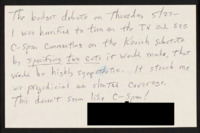 The budget debate on Thursday 5/22—
I was horrified to turn on the TV and see
C-Span Commenting on the Kasich substitute
by specifying two cuts it would made, that
would be highly sympathetic. It struck me
as prejudicial and slanted coverage.
This doesn't seem like C-Span!